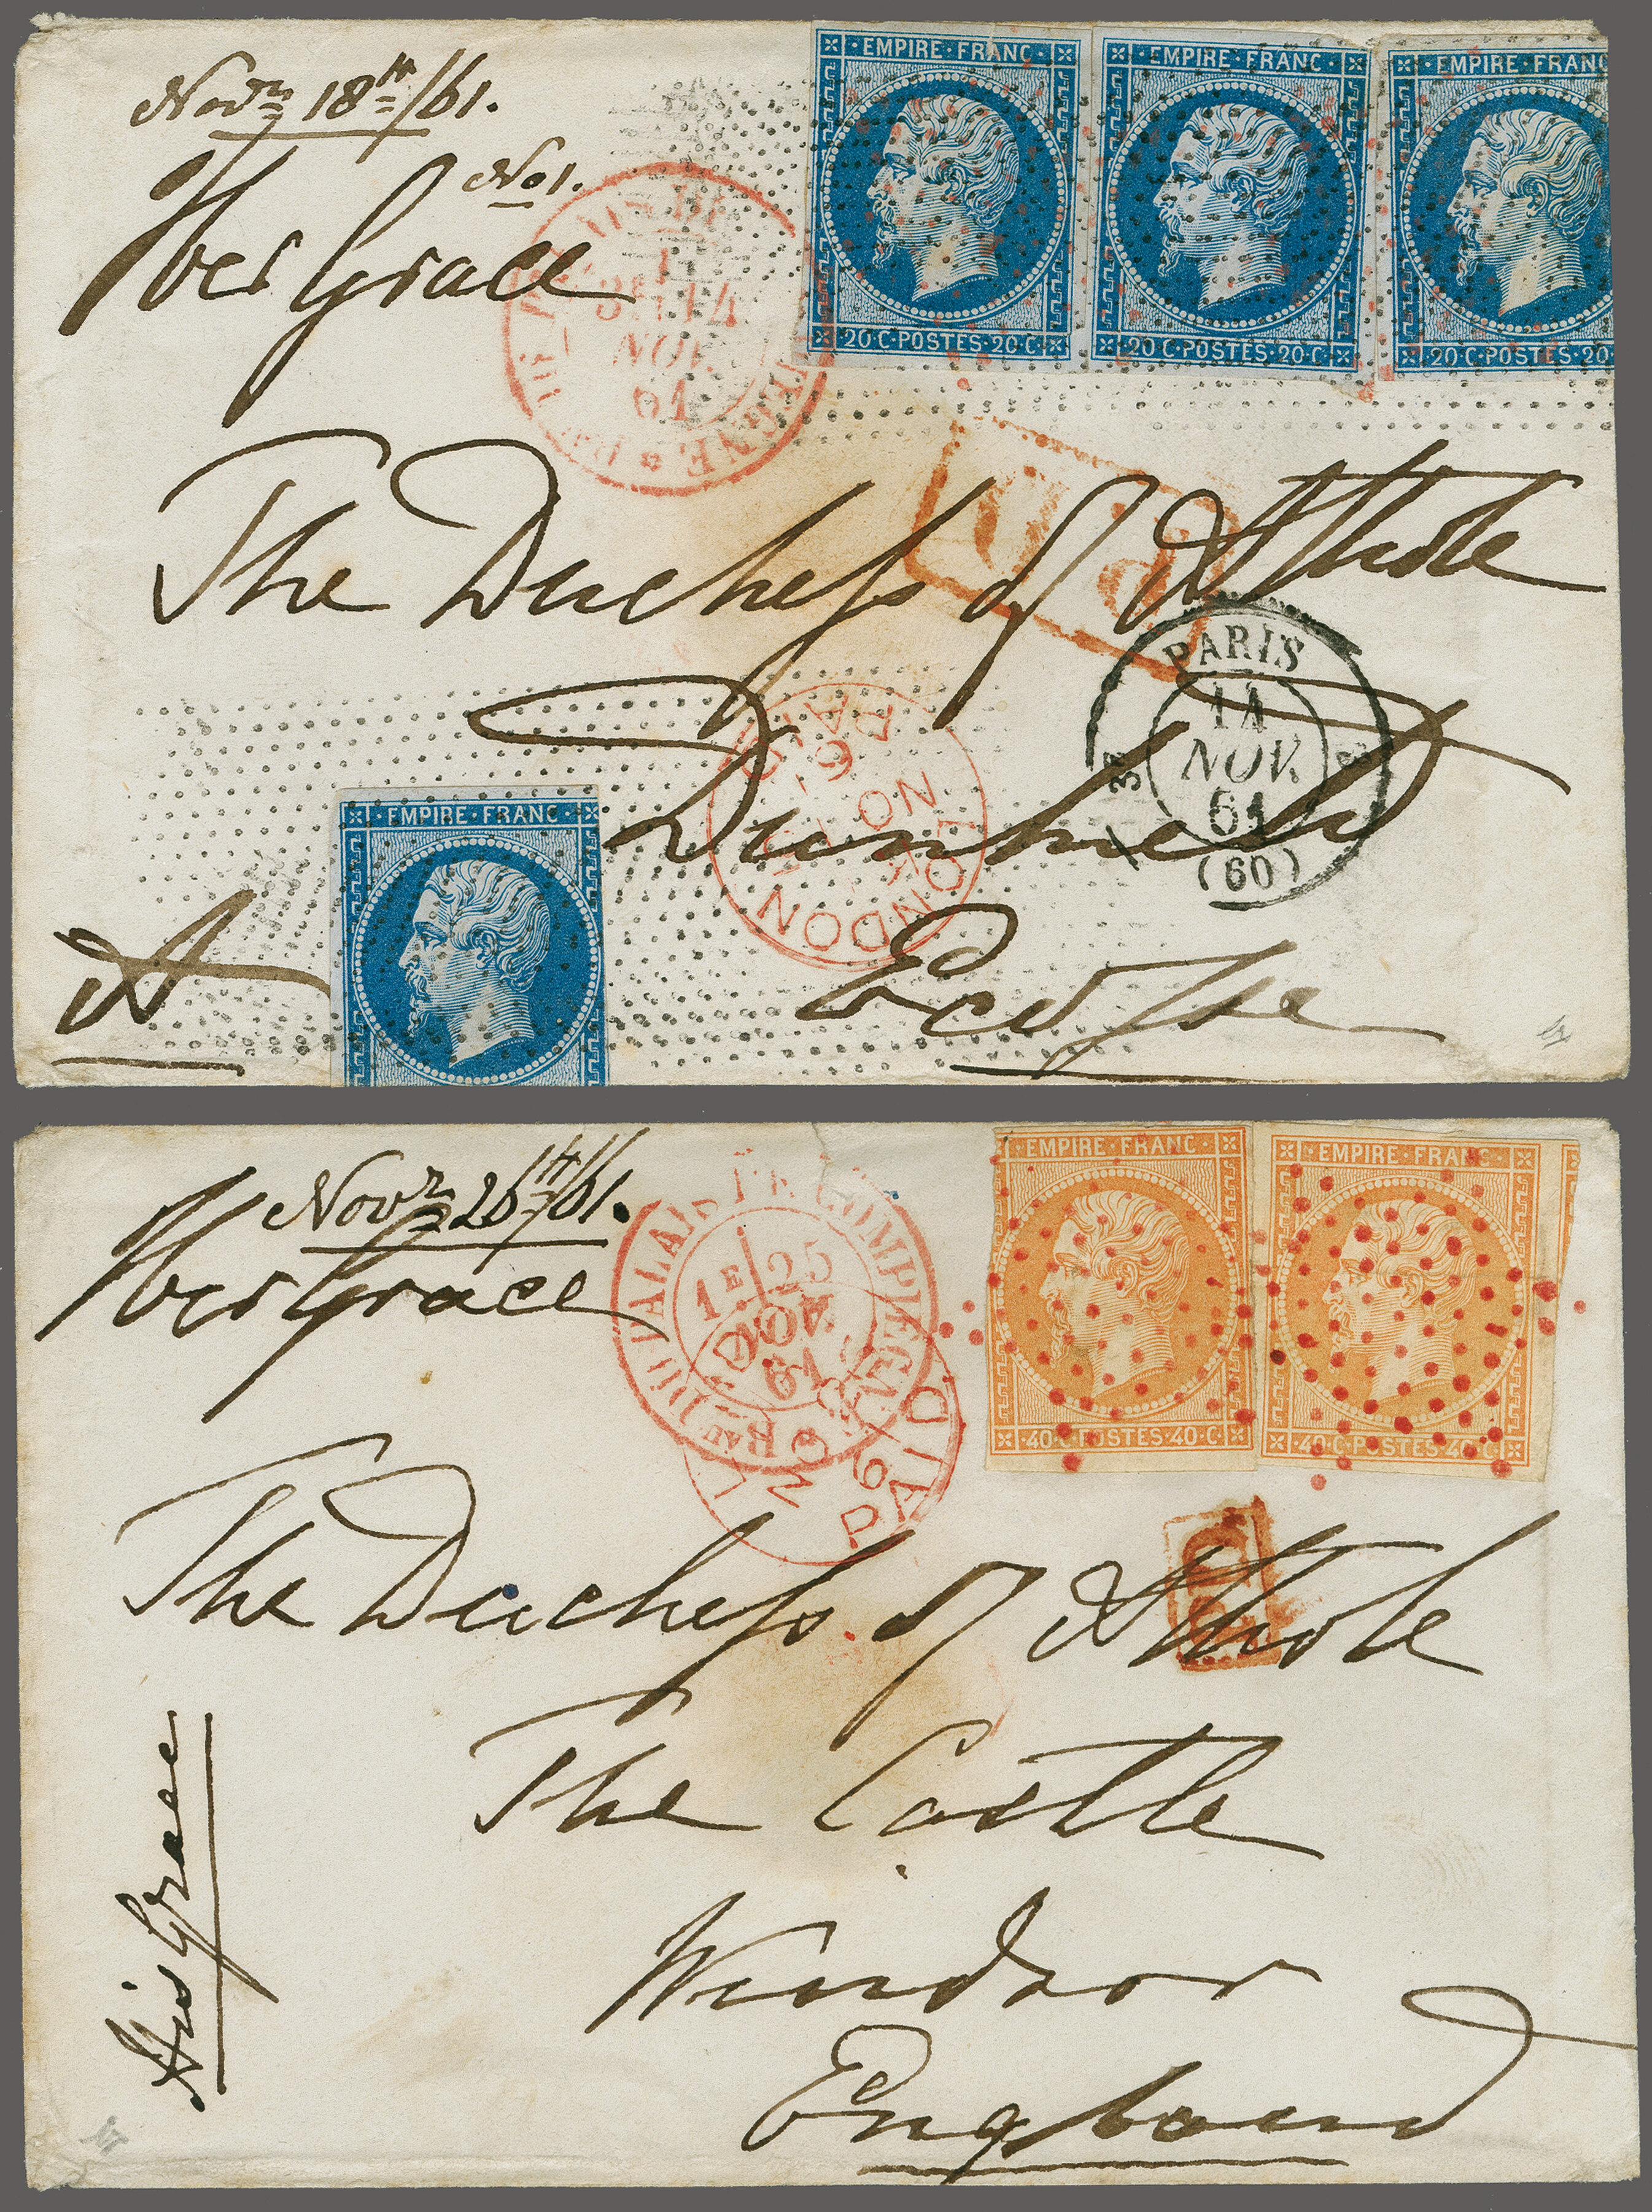 Novr 18th/61.
No 1.
Her Grace
EMPIRE·FRANC·
20·C·POSTES·20·C·
EMPIRE·FRANC·
20·C·POSTES·20·C·
EMPIRE·FRANC
20·C·POSTES·20
14
NOV.
61
PD
The Duchess of Athole
PARIS
14
NOV.
61
(60)
LONDON
NO
61
PAID
Dunkeld
EMPIRE·FRANC·
A
Ecosse
Novr 26th/61.
Her Grace
PALAIS DE COMPIEGNE
1E 25
NOV.
61
LONDON
PAID
EMPIRE·FRANC·
40·C·POSTES·40·C·
EMPIRE·FRANC·
40·C·POSTES·40·C·
PD
The Duchess of Athole
The Castle
Windsor
England
His Grace